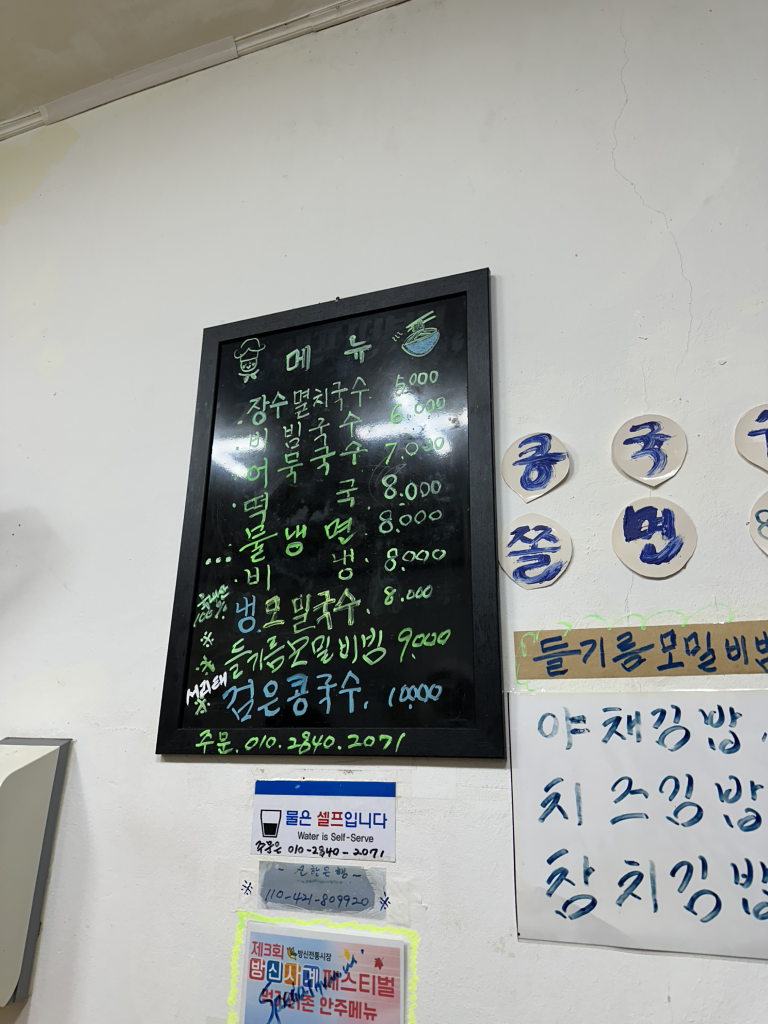 메 뉴
장수멸치국수 5.000
비빔국수 6.000
어묵국수 7.000
떡국 8.000
물냉면 8.000
비냉 8.000
100% 냉모밀국수. 8.000
※ 들기름모밀비빔 9.000
서리태 ※ 검은콩국수. 10000
주문. 010.2840.2071
물은 셀프입니다
Water is Self-Serve
주문은 010-2840-2071
- 신한은행 -
※ 110-421-809920 ※
제3회 방신전통시장
방신사계페스티벌
안주메뉴
콩 국
쫄 면
들기름모밀비빔
야채김밥.
치즈김밥
참치김밥